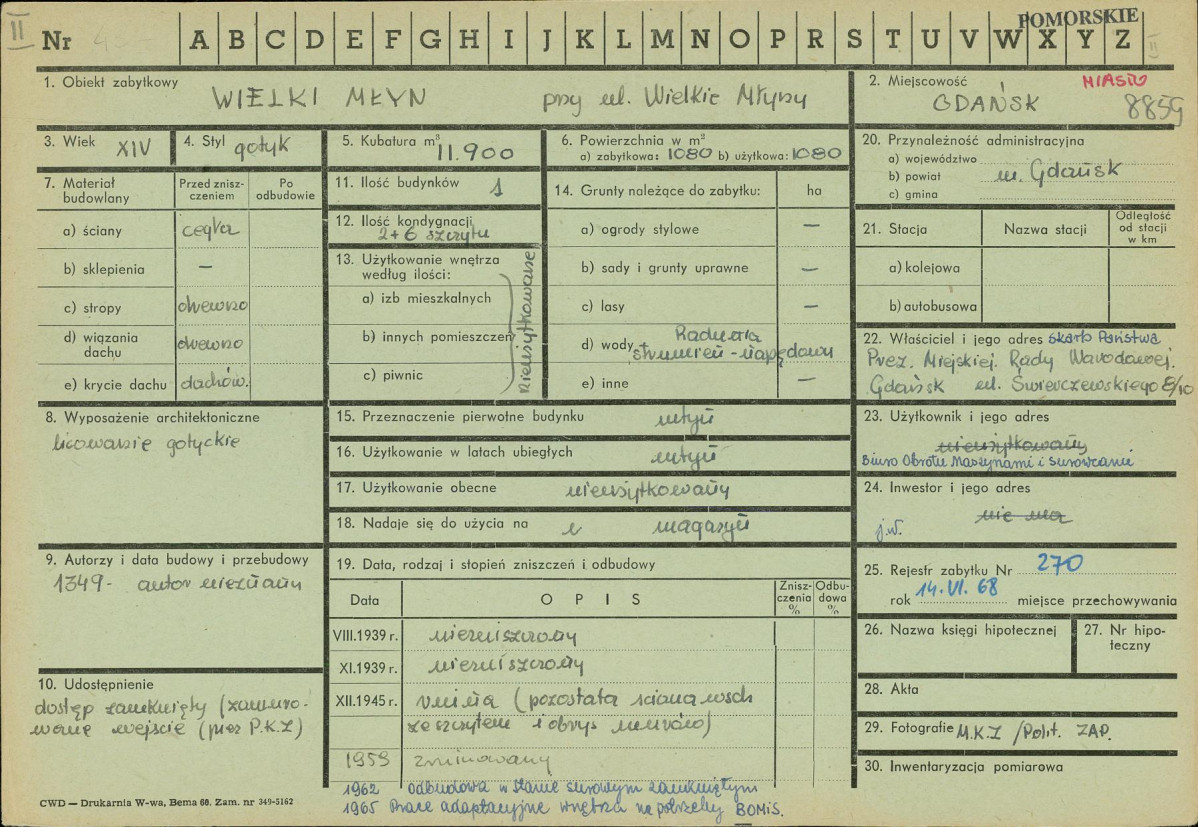 II
POMORSKIE
Nr A B C D E F G H I J K L M N O P R S T U V W X Y Z
II
1. Obiekt zabytkowy
WIELKI MŁYN przy ul. Wielkie Młyny
2. Miejscowość
MIASTO
GDAŃSK
8859
3. Wiek XIV
4. Styl gotyk
5. Kubatura m³ 11.900
6. Powierzchnia w m²
a) zabytkowa: 1080 b) użytkowa: 1080
7. Materiał budowlany
Przed zniszczeniem
Po odbudowie
a) ściany cegła
b) sklepienia —
c) stropy drewno
d) wiązania dachu drewno
e) krycie dachu dachów.
8. Wyposażenie architektoniczne
licowanie gotyckie
9. Autorzy i data budowy i przebudowy
1349- autor nieznany
10. Udostępnienie
dostęp zamknięty (zamuro-
wane wejście (przez P.K.Z)
11. Ilość budynków 1
12. Ilość kondygnacji
2+6 szczytu
13. Użytkowanie wnętrza
według ilości:
a) izb mieszkalnych
b) innych pomieszczeń
c) piwnic
nieużytkowane
14. Grunty należące do zabytku: ha
a) ogrody stylowe —
b) sady i grunty uprawne —
c) lasy —
d) wody Radunia
strumień - napędowy
e) inne —
15. Przeznaczenie pierwotne budynku młyn
16. Użytkowanie w latach ubiegłych młyn
17. Użytkowanie obecne nieużytkowany
18. Nadaje się do użycia na magazyn
19. Data, rodzaj i stopień zniszczeń i odbudowy
Data
OPIS
Zniszczenia %
Odbudowa %
VIII.1939 r. niezniszczony
XI.1939 r. niezniszczony
XII.1945 r. ruina (pozostała ściana wsch
ze szczytem i obrys murów)
1959 zrujnowany
1962 odbudowa w stanie surowym zamkniętym
1965 Prace adaptacyjne wnętrza na potrzeby BOMiS.
20. Przynależność administracyjna
a) województwo
b) powiat m. Gdańsk
c) gmina
21. Stacja
Nazwa stacji
Odległość od stacji w km
a) kolejowa
b) autobusowa
22. Właściciel i jego adres Skarb Państwa
Prez. Miejskiej. Rady Narodowej.
Gdańsk ul. Świerczewskiego 8/10
23. Użytkownik i jego adres
nieużytkowany
Biuro Obrotu Maszynami i Surowcami
24. Inwestor i jego adres
nie ma
j.w.
25. Rejestr zabytku Nr 270
rok 14.VI.68 miejsce przechowywania
26. Nazwa księgi hipotecznej
27. Nr hipoteczny
28. Akta
29. Fotografie M.K.Z /Polit. ZAP.
30. Inwentaryzacja pomiarowa
CWD — Drukarnia W-wa, Bema 60. Zam. nr 349-5162